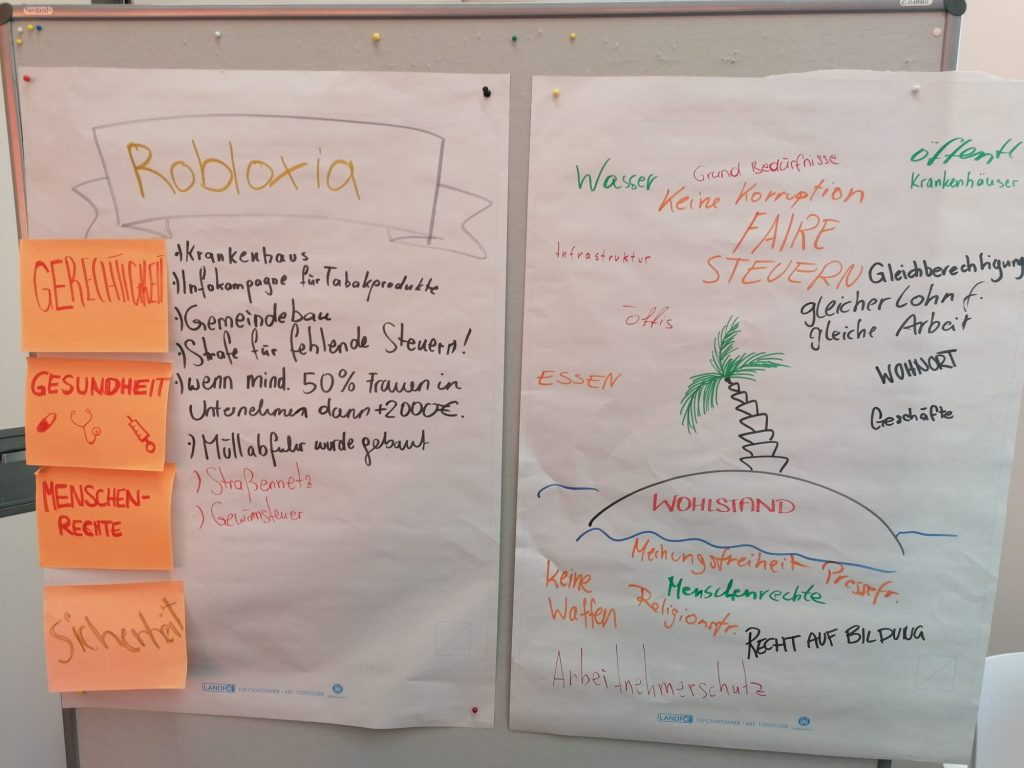 Robloxia
GERECHTIGKEIT
GESUNDHEIT
MENSCHEN-
RECHTE
Sicherheit
·) Krankenhaus
·) Infokampagne für Tabakprodukte
·) Gemeindebau
·) Strafe für fehlende Steuern!
·) wenn mind. 50% Frauen in
Unternehmen dann +2000€.
·) Müllabfuhr wurde gebaut
·) Straßennetz
·) Gewinnsteuer
LANDRÉ FLIP-CHARTPAPER • ART. 100050588
Wasser
Grund Bedürfnisse
öffentl
Krankenhäuser
Keine Korruption
FAIRE
STEUERN
Infrastruktur
Gleichberechtigung
gleicher Lohn f.
gleiche Arbeit
öffis
WOHNORT
ESSEN
Geschäfte
WOHLSTAND
Meinungsfreiheit
Pressefr.
keine
Waffen
Menschenrechte
Religionsfr.
RECHT AUF BILDUNG
Arbeitnehmerschutz
LANDRÉ FLIP-CHARTPAPER • ART. 100050588